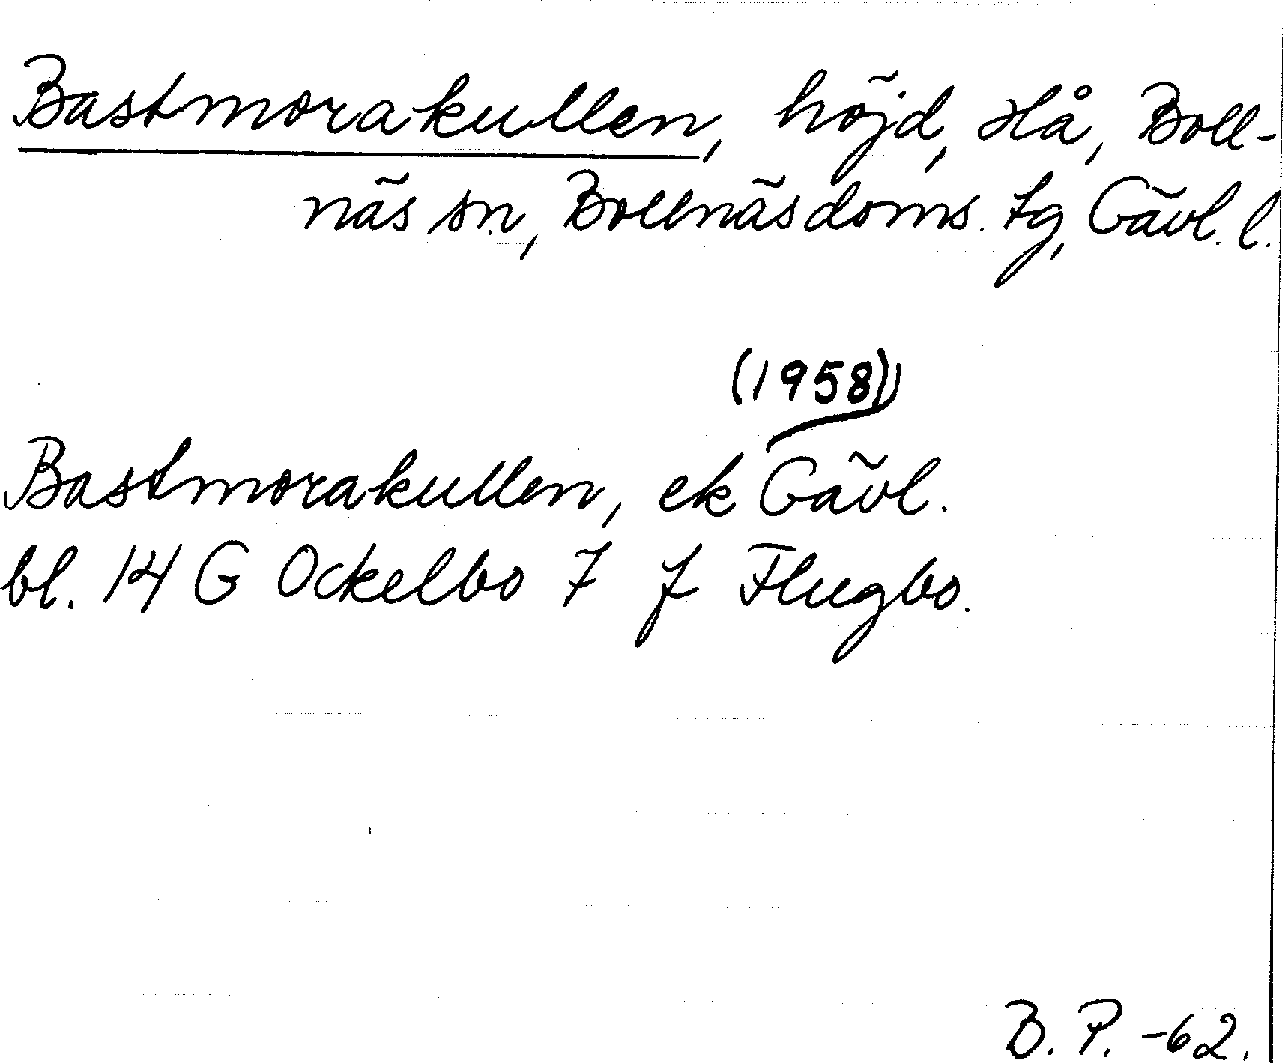 Bastmorakullen, höjd, Hå, Boll-
näs sn, Bollnäs doms. tg, Gävl. l.
(1958)
Bastmorakullen, ek Gävl.
bl. 14 G Ockelbo 7 f Flugbo.
B. P. -62.